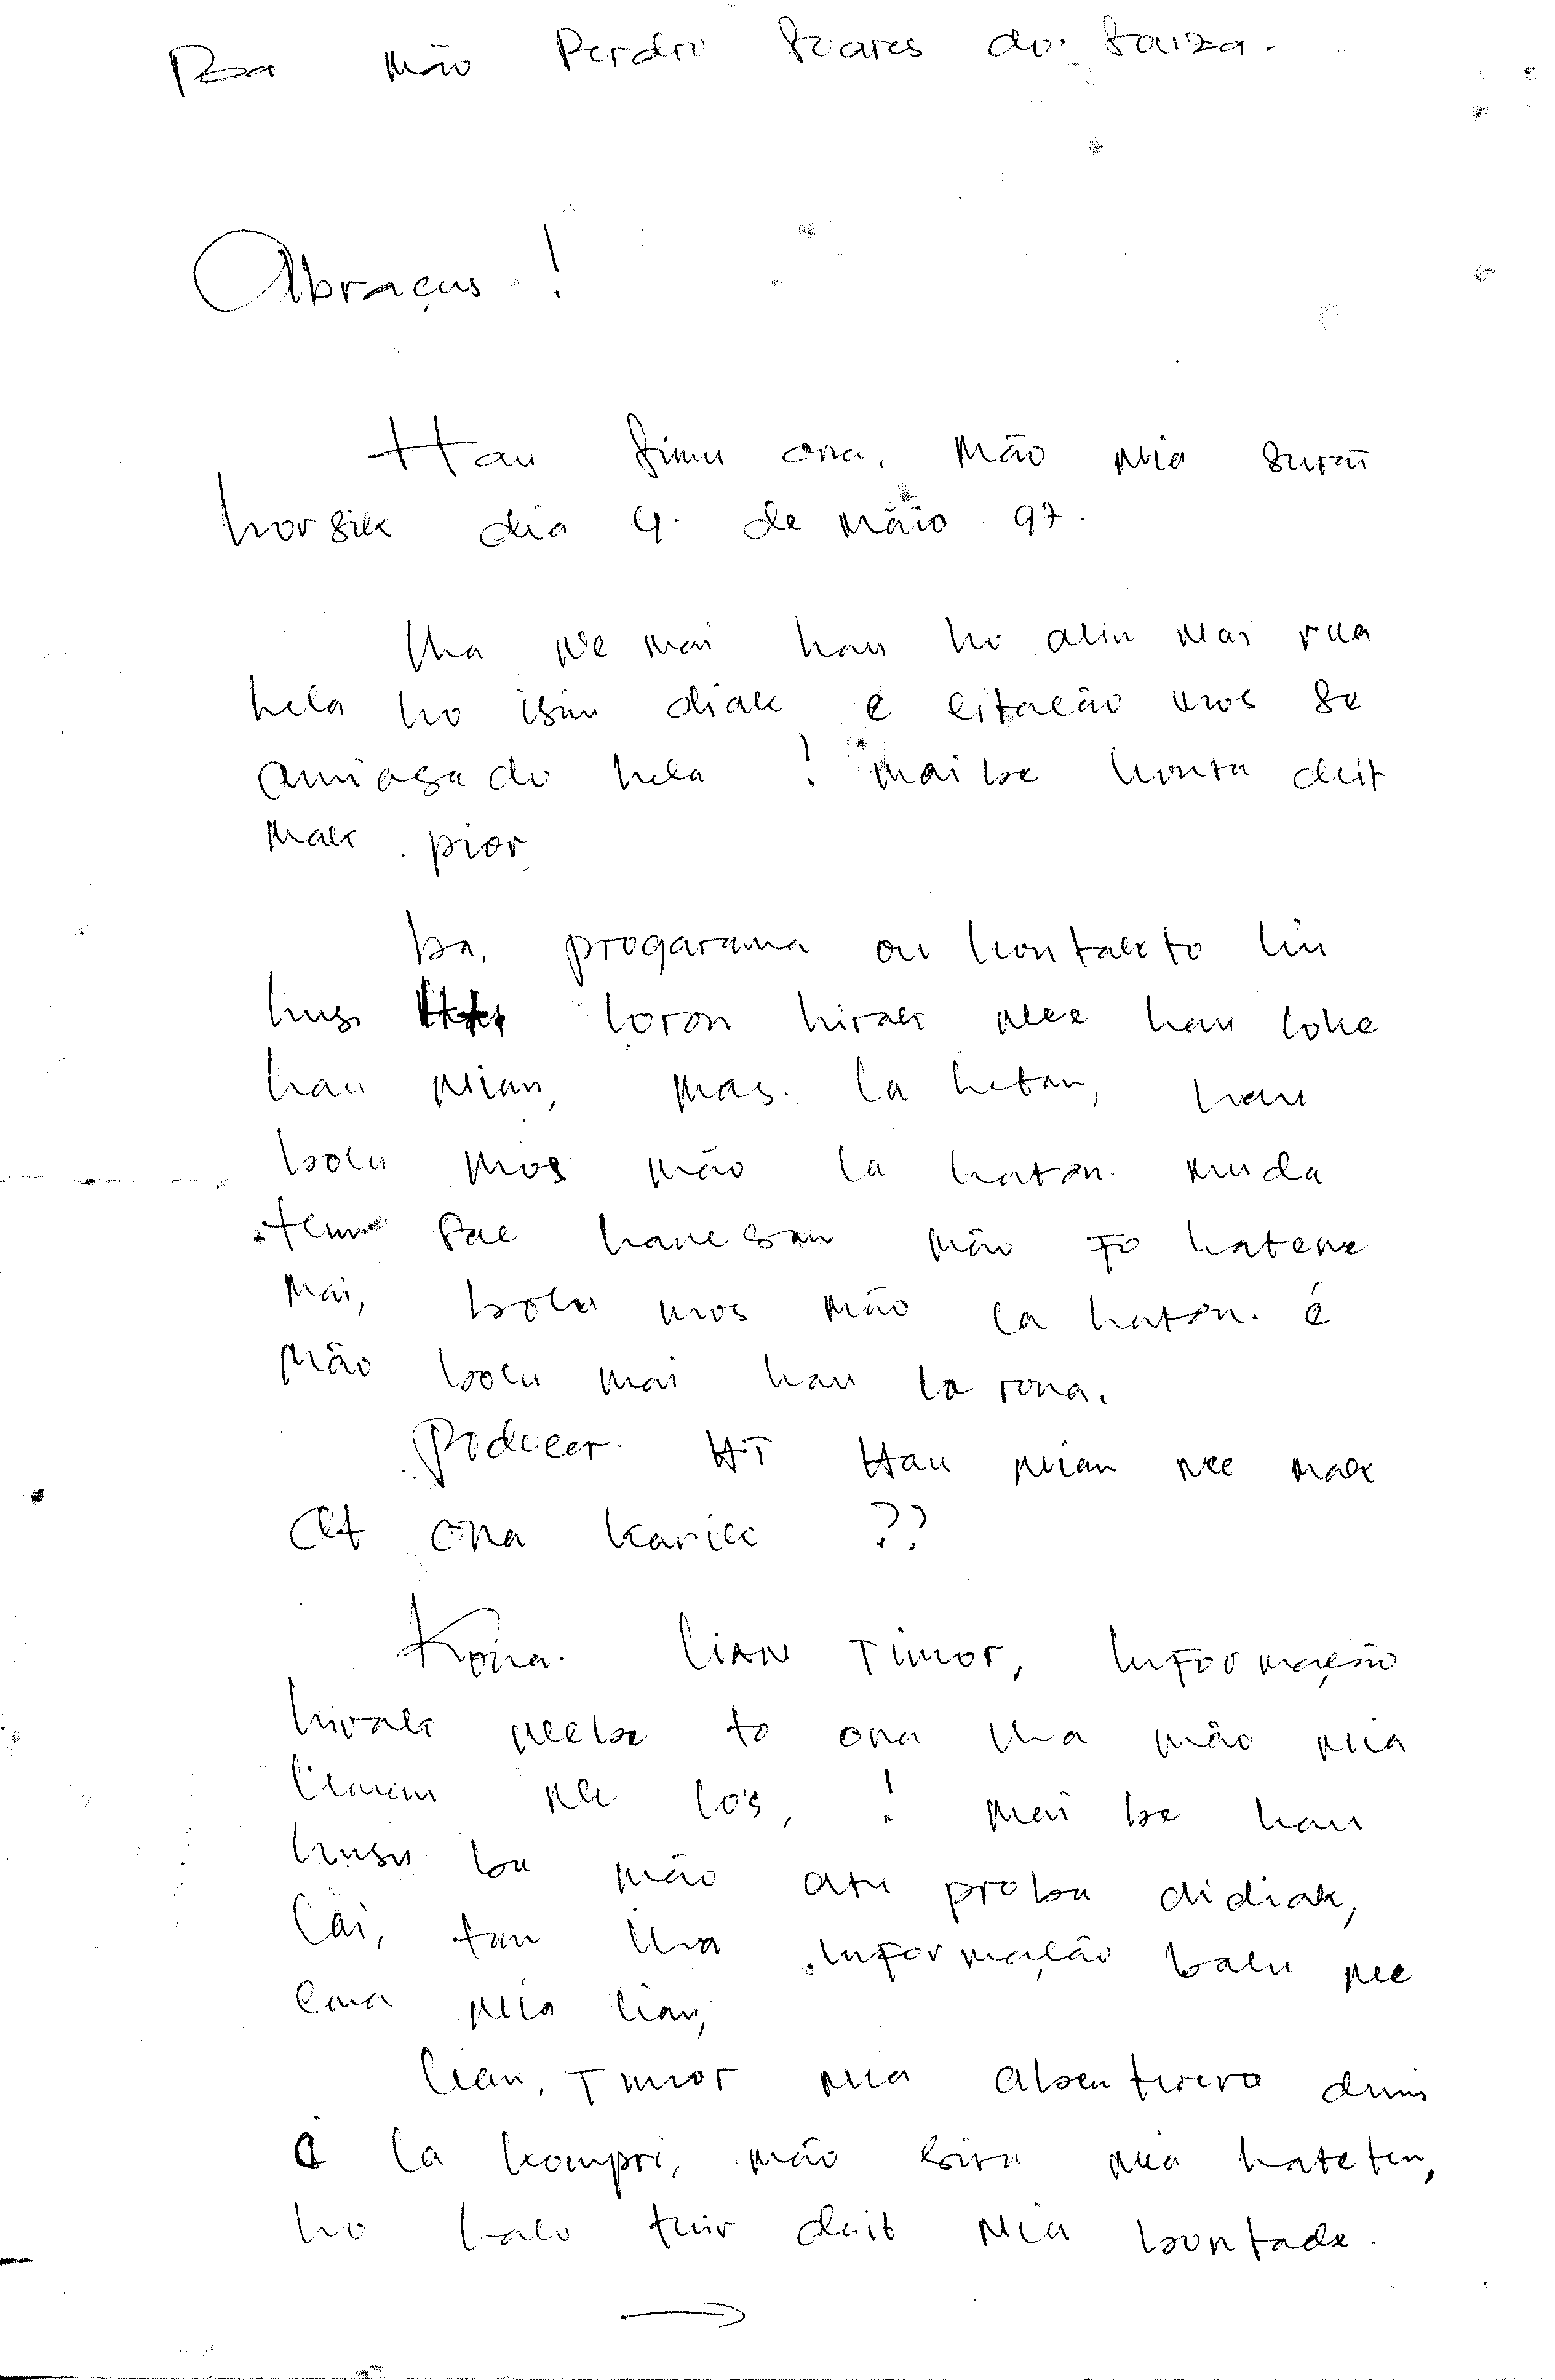 Ba mão Perdro Soares do Souza.
Abraçus !
Hau simu ona, mão nia surat
horsik dia 4. de mãio 97.
Iha ne mai hau ho alin nai rua
hela ho isin diak e citacão mos se
amiasa do hela ! maibe konta deit
mak pior
ba, programa ou kontakto liu
husi loron hirak nee hau loke
hau nian, mas. la hetan, hau
bolu mos mão la hatan. muda
temi fae hanesan mão fo hatene
mai, bolu mos mão la hatan. é
mão bolu mai hau la rona.
Podeeer. HT Hau nian nee mak
at ona karik ??
Kona. Lian Timor, Informação
hirak neebe to ona iha mão nia
liman ne los, ! mai be hau
husu ba mão atu proba didiak,
lai, tan iha informação balu nee
ema nia lian,
Lian, Timor nia absentivero duni
e la kompri, mão sira nia hateten,
ho halo tuir deit nia bontade.